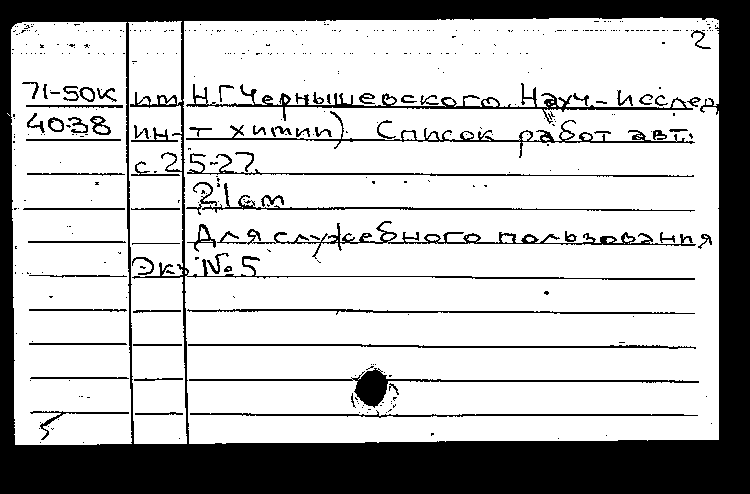 2
71-50К им. Н.Г.Чернышевского. Науч.-исслед.
4038 ин-т химии). Список работ авт.:
с.25-27.
21 см
Для служебного пользования
Экз. №5